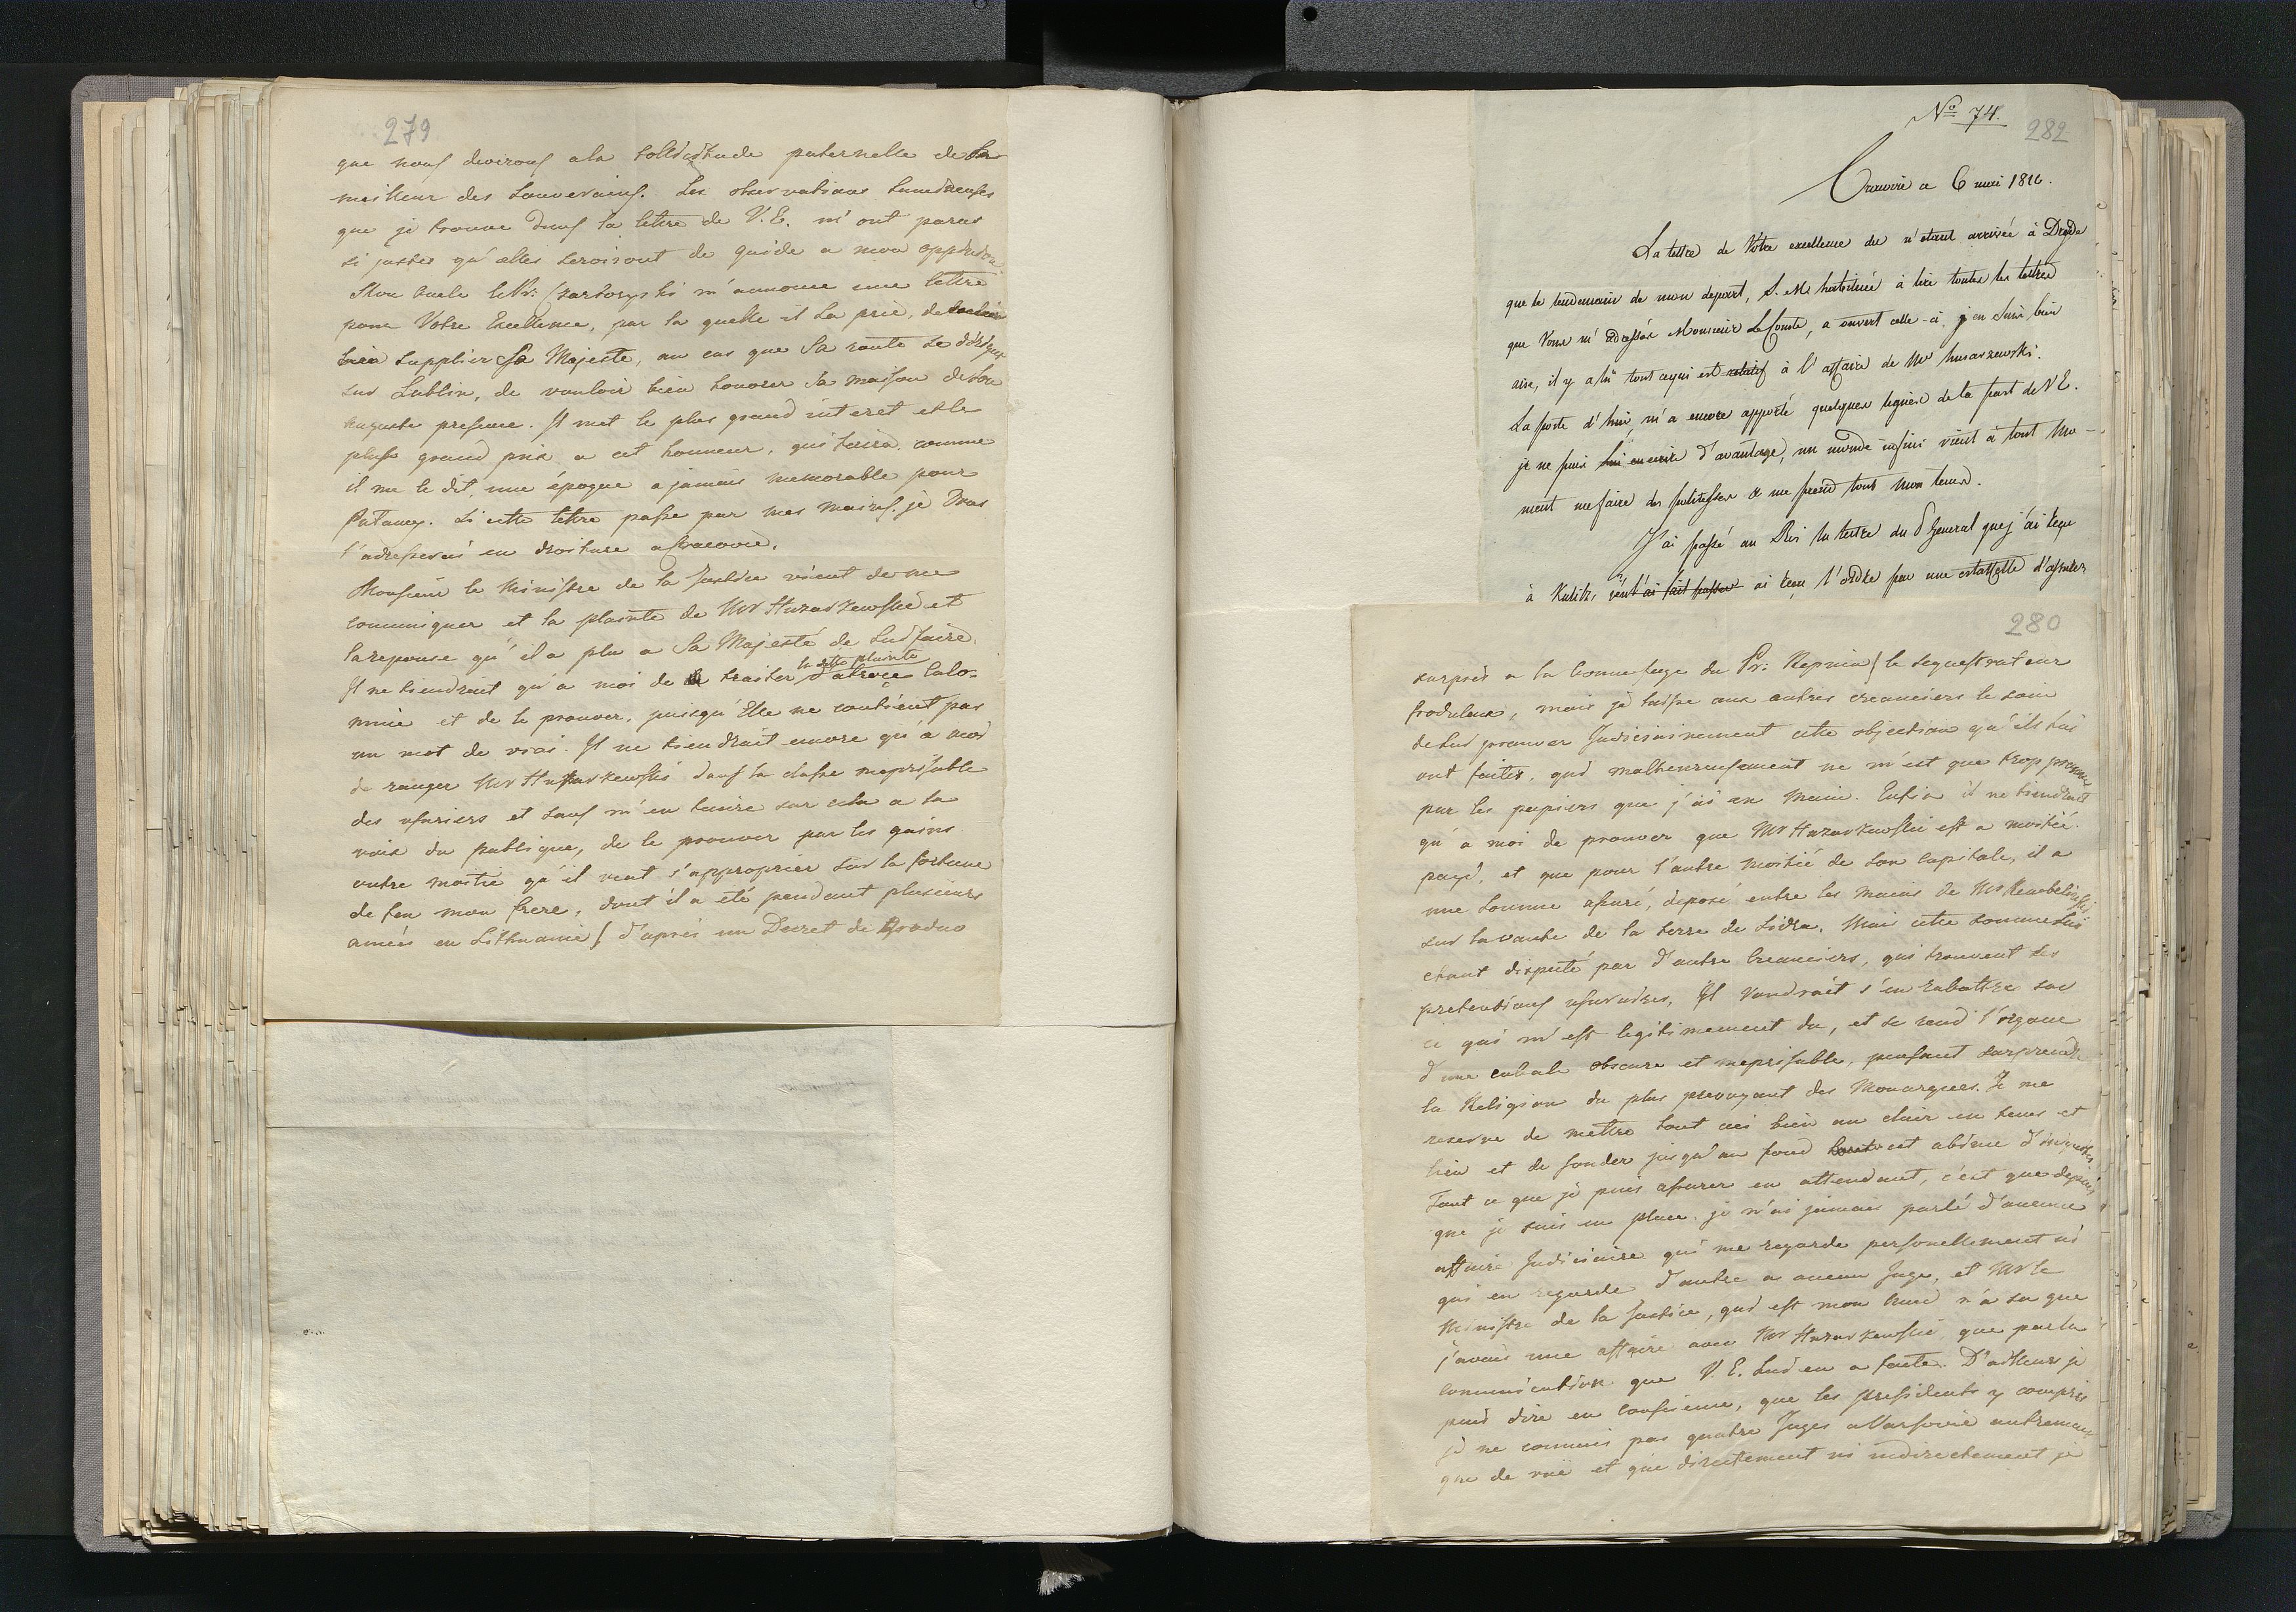 279
que nous devrons a la sollicitude paternelle de la
meilleur des Souverains. Les observations lumineuses
que je trouve dans la lettre de V. E. m'ont parus
si justes qu'elles seroiront de guide a mon oppinion
Mon oncle le Pr: Czartoryski m'annonce une lettre
pour Votre Excellence, par la quelle il La prie, de vouloir
bien supplier Sa Majesté, au cas que Sa route se dirige
sur Lublin, de vouloir bien honorer sa maison de Son
auguste presence. Il met le plus grand interet et le
plus grand prix a cet honneur, qui seroit, comme
il me le dit, une époque a jamais memorable pour
Pulawy. Si cette lettre passe par mes mains, je Vous
l'adresserai en droiture a Cracovie.
Monsieur le Ministre de la Justice vient de me
communiquer et la plainte de Mr Huzarzewski et
la reponse qu'il a plu a Sa Majesté de Lui faire.
Il ne tiendroit qu'a moi de traiter la dite plainte d'atroçe calo-
mnie et de le prouver, puisqu'Elle ne contient pas
un mot de vrai. Il ne tiendrait encore qu'a moi
de ranger Mr Huzarzewski dans la classe meprisable
des usuriers et sans m'en tenir sur cela a la
voix du publique, de le prouver par les gains
outre mesure qu'il veut s'approprier sur la fortune
de feu mon frere, dont il a été pendant plusieurs
années en Lithuanie / d'après un Decret de Grodno
No 74.
282
Cracovie ce 6 mai 1810.
La lettre de Votre excellence du n'etant arrivée à Dresde
que le lendemain de mon depart, S. M. habituée à lire toutes les lettres
que Vous m'adressés Monsieur Le Comte, a ouvert celle-ci. j'en suis bien
aise, il y a lu tout ce qui est relatif à l'affaire de Mr husarzewski.
La poste d'hui, m'a encore apporté quelques lignes de la part de V E.
je ne puis Lui en ecrire d'avantage, un monde infini vient à tout Mo-
ment me faire des politesses & me prend tout mon tems.
J'ai passé au Roi la lettre du General que j'ai reçu
à Kulitz, j'en ai reçu l'ordre par une estaffette d'assurer
280
surpris a la bonne foye du Pr: Repnin / le sequestrateur
frodulent, mais je laisse aux autres creanciers le soin
de Lui prouver Judiciairement cette objection qu'ils lui
ont faites, qui malheureusement ne m'est que trop prouvé
par les papiers que j'ai en main. Enfin il ne tiendrait
qu'a moi de prouver que Mr Huzarzewski est a moitié
payé, et que pour l'autre moitié de son capitale, il a
une somme assuré, deposé entre les mains de Mr
sur la vante de la terre de Sidra. Mais cette somme Lui
étant disputé par d'autre Creanciers, qui trouvent ses
pretentions usuraires, Il voudrait s'en rabattre sur
ce qui m'est legitimement du, et se rend l'organe
d'une cabale obscure et meprisable, pensant surprendre
la Religion du plus prevoyant des Monarques. Je me
reserve de mettre tout ceci bien au clair en tems et
lieu et de sonder jusqu'au fond cet abime d'iniquités.
Tout ce que je puis assurer en attendant, c'est que depuis
que je suis en place je n'ai jamais parlé d'aucune
affaire Judiciaire qui me regarde personellement ni
qui en regarde d'autre a aucun Juge, et Mr le
Ministre de la Justice, qui est mon Ami n'a su que
j'avois une affaire avec Mr Huzarzewski que par la
communication que V. E. Lui en a faite. D'ailleurs je
puis dire en conscience, que les presidents y compris
je ne connais pas quatre Juges a Varsovie autrement
que de vuë et que directement ni indirectement je